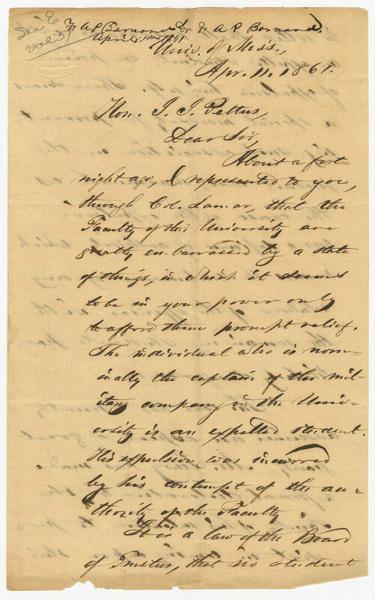 F A P Barnard Dr F A P Barnard
April 11th 1861
Univ. of Miss.,
Apr. 11. 1861.
Hon. J. J. Pettus,
Dear Sir,
About a fort
night ago, I represented to you,
through Col. Lamar, that the
Faculty of this University are
greatly embarrassed by a state
of things, in which it seems
to be in your power only
to afford them prompt relief.
The individual who is nom-
inally the captain of the mil-
itary company in the Univ-
ersity is an expelled student.
His expulsion was incurred
by his contempt of the au-
thority of the Faculty.
It is a law of the Board
of Trustees, that no student